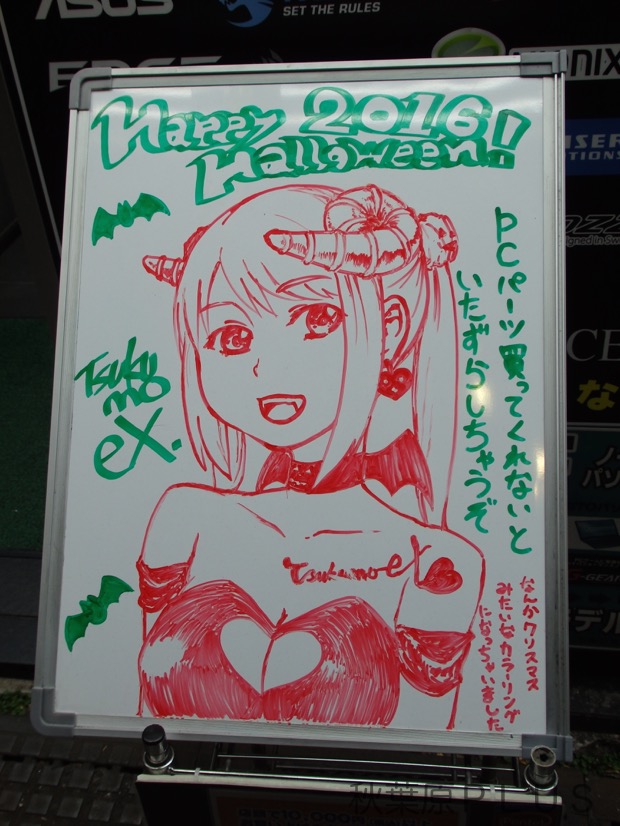 ASUS
SET THE RULES
Happy 2016
Halloween!
PCパーツ買ってくれないと
いたずらしちゃうぞ
Tsuku
mo
eX.
Tsukumo eX
なんかクリスマス
みたいなカラーリング
になっちゃいました
な
ノ
パソ
デル
秋葉原PLUS